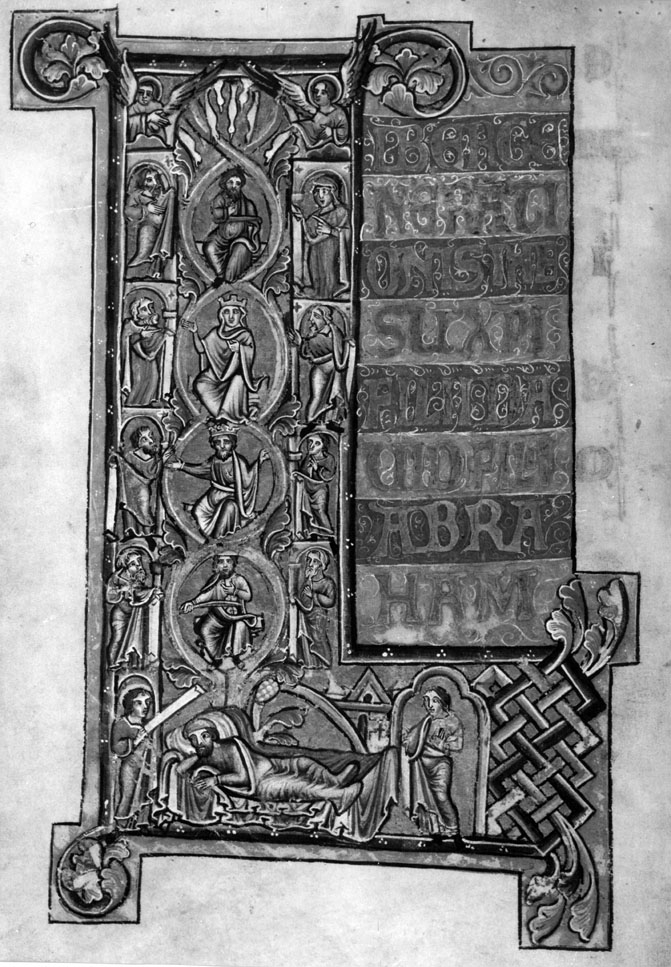 LIBER GE
NERATI
ONIS IHE
SU XPI
FILII DA
UID FILII
ABRA
HAM